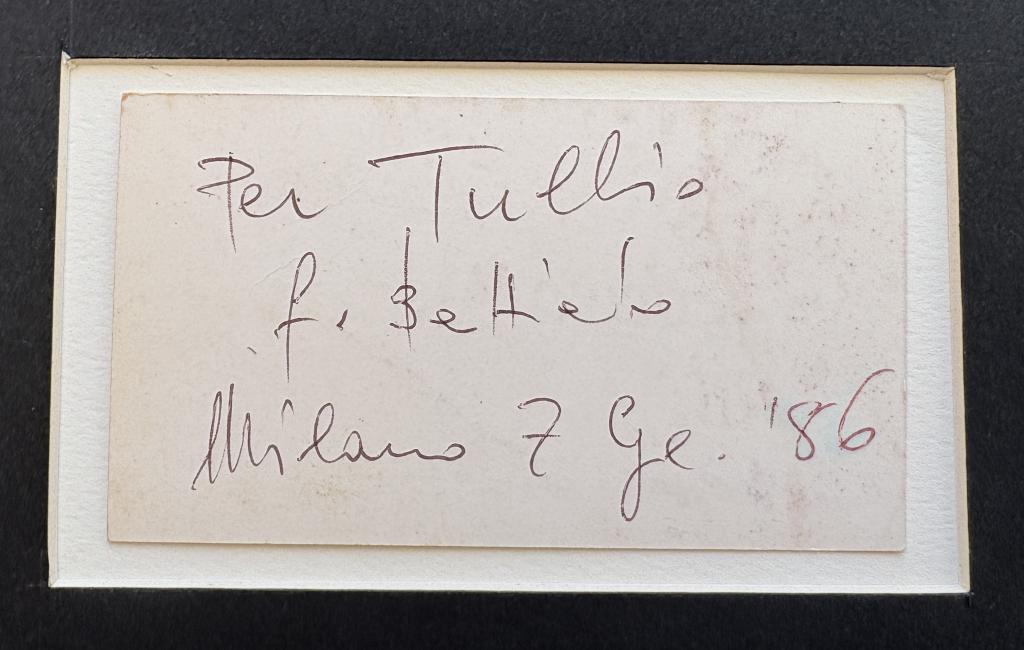 Per Tullio
f. Battiato
Milano 7 Ge. '86